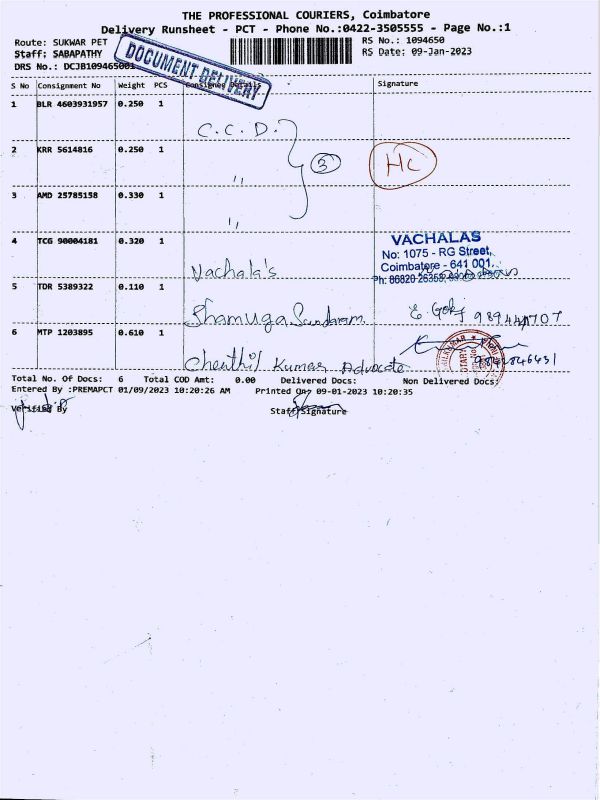 THE PROFESSIONAL COURIERS, Coimbatore
Delivery Runsheet - PCT - Phone No.:0422-3505555 - Page No.:1
Route: SUKWAR PET
RS No.: 1094650
Staff: SABAPATHY
RS Date: 09-Jan-2023
DRS No.: DCJB109465001
DOCUMENT DELIVERY
S No Consignment No Weight PCS Consignee Details Signature
1 BLR 4603931957 0.250 1 C.C.D.
2 KRR 5614816 0.250 1 " 3 HC
3 AMD 25785158 0.330 1 "
4 TCG 90004181 0.320 1 Vachala's
VACHALAS
No: 1075 - RG Street,
Coimbatore - 641 001.
5 TDR 5389322 0.110 1 Shamuga Sundaram
6 MTP 1203895 0.610 1 Chenthil Kumar Advocate
Total No. Of Docs: 6 Total COD Amt: 0.00 Delivered Docs: Non Delivered Docs:
Entered By :PREMAPCT 01/09/2023 10:20:26 AM Printed On: 09-01-2023 10:20:35
Verified By
Staff Signature